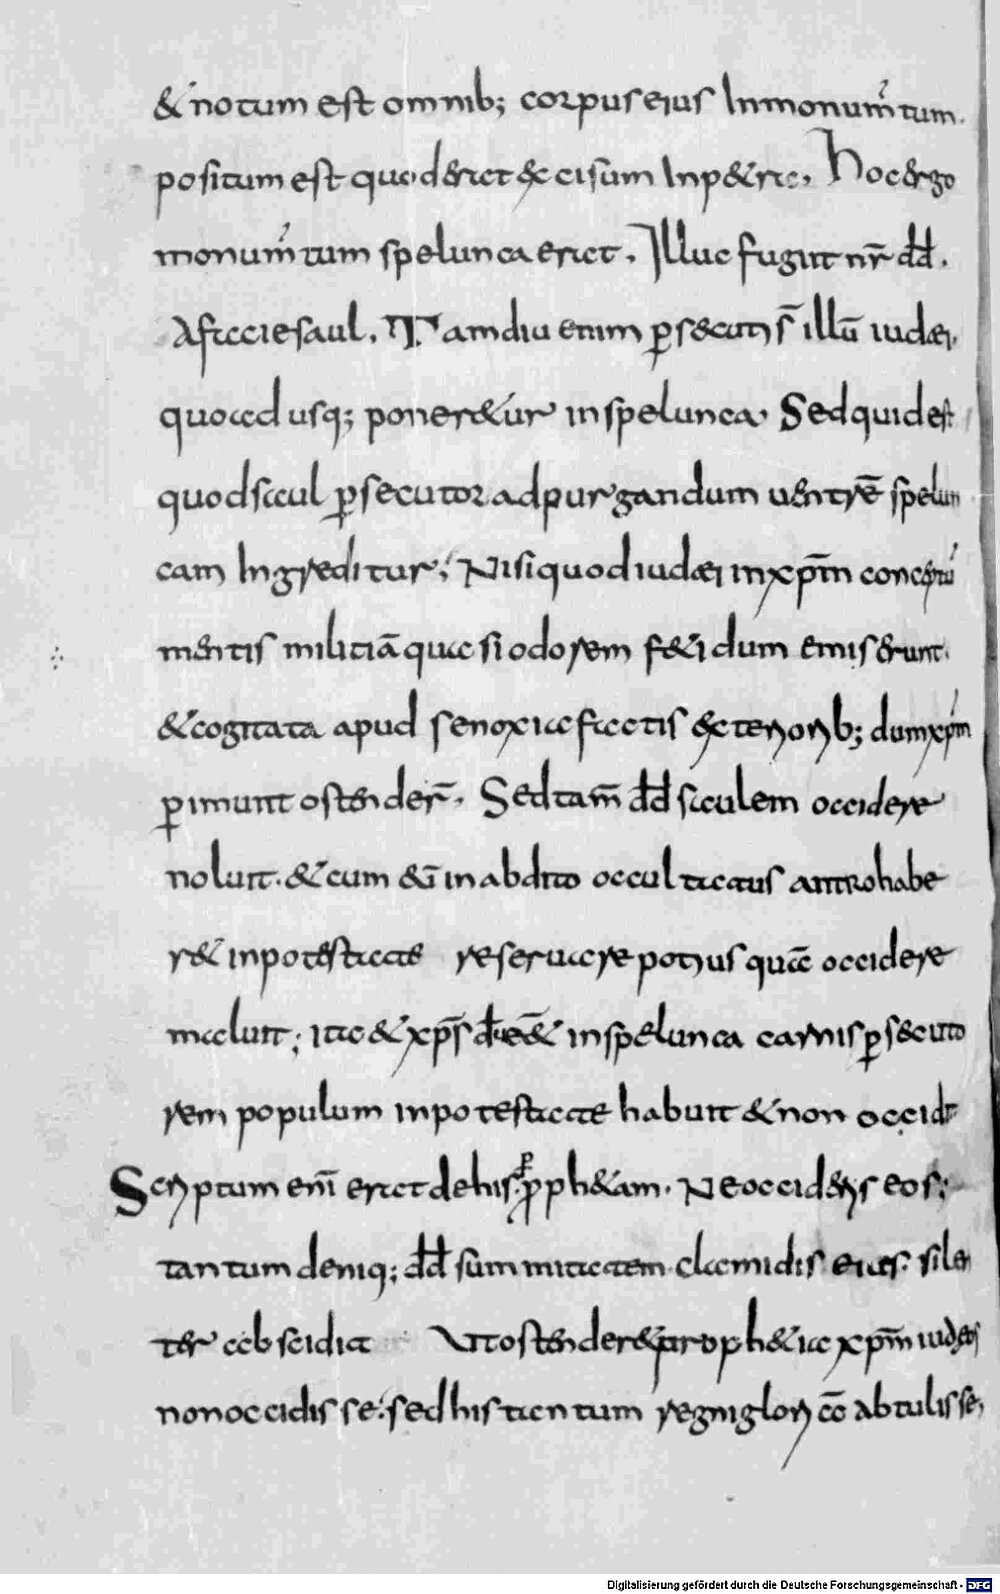 & notum est omnib; corpus eius In monum̄tum.
positum est quod erat excisum In p&ra, Hoc ergo
monum̄tum spelunca erat. Illuc fugiit nr̄ dd̄.
A facie saul. Tamdiu enim p̱secutus ē illū iudæi,
quoad usq; poner&ur in spelunca, Sed quid est
quod saul p̱secutor ad purgandum uentrē spelun
cam Ingreditur; Nisi quod iudæi in xp̄m conceptū
mentis malitiā quasi odorem f&idum emiserunt.
& cogitata apud se noxia factis exteriorib; dum xp̄m
p̱imunt ostender̄. Sed tam̄ dd̄ saulem occidere
noluit. & cum eū in abdito occultatus antro habe
r& in potestate reseruare potius quā occidere
maluit; ita & xp̄s in spelunca carnis p̱secuto
rem populum in potestate habuit & non occid
Scriptum enī erat de his p̱ proph&am. Ne occideris eos;
tantum deniq; dd̄ summitatem clamidis eius. silen
ter abscidit Ut ostender& proph&ia xp̄m iudeos
non occidisse. sed his tantum regni gloriā abtulisse,
Digitalisierung gefördert durch die Deutsche Forschungsgemeinschaft - DFG